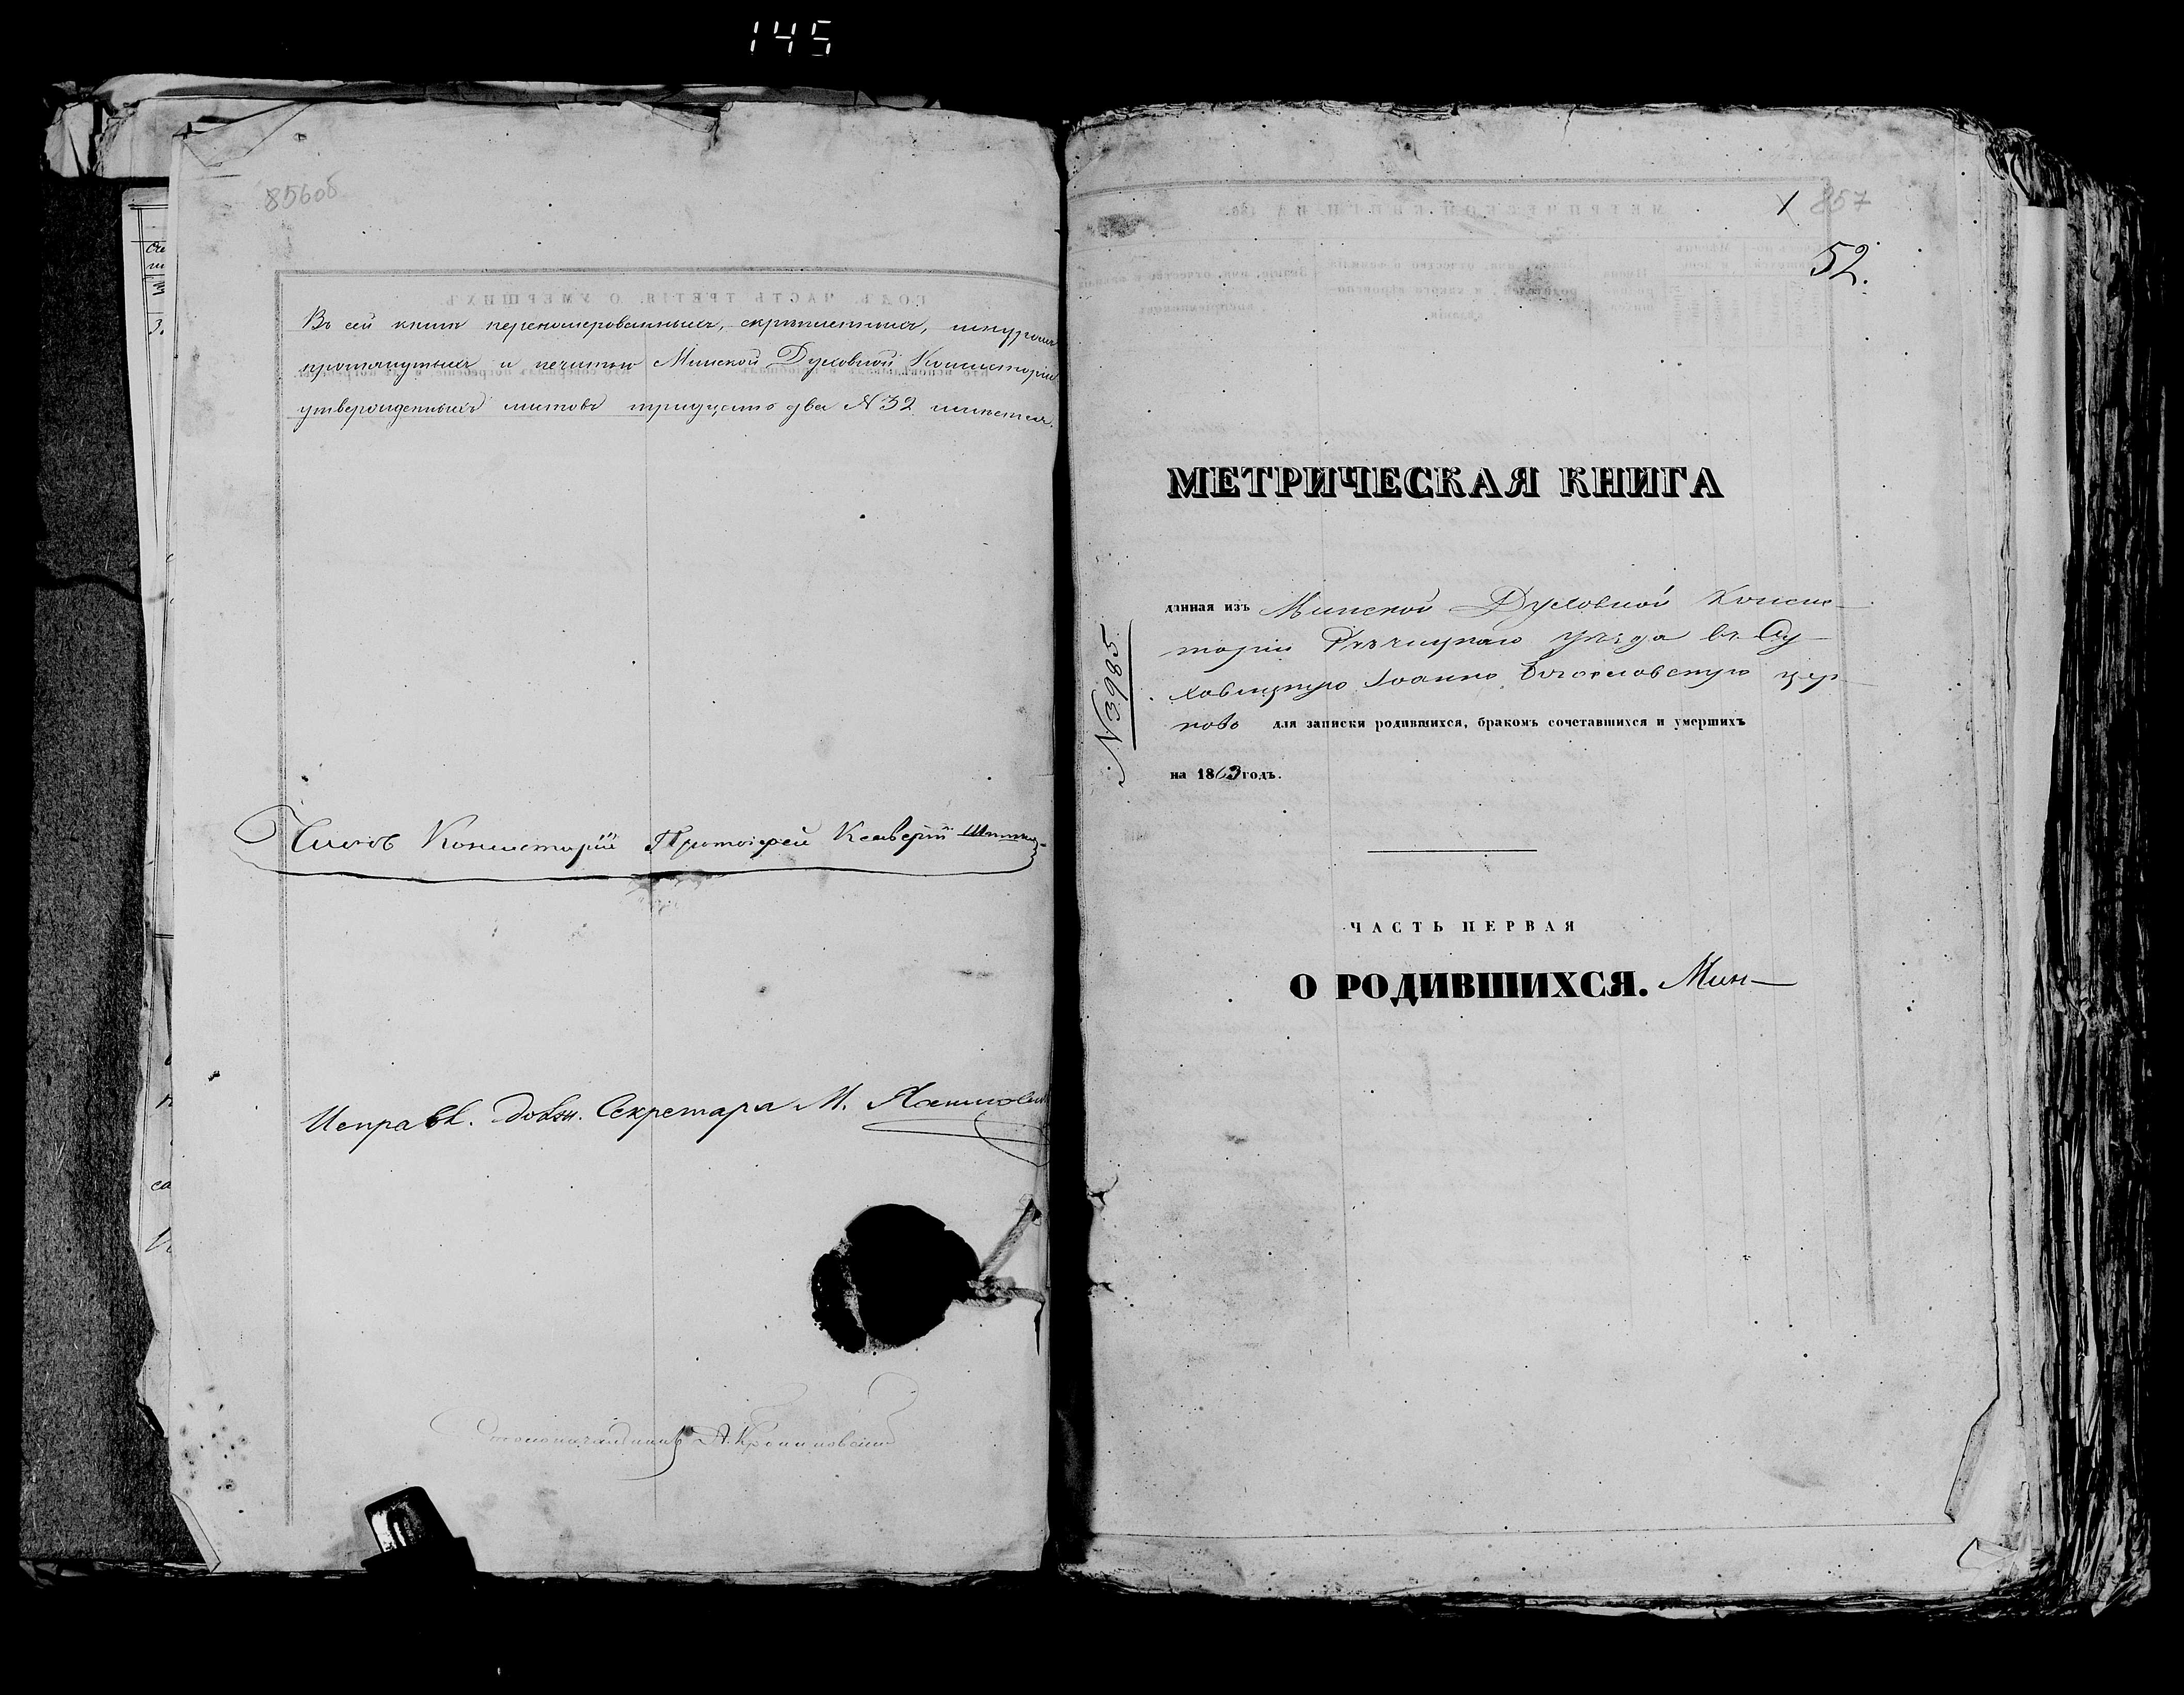 145
856об
Въ сей книгѣ перенумерованныхъ, скрѣпленныхъ, шнуромъ
протянутыхъ и печатью Минской Духовной Консисторіи
утвержденныхъ листовъ тридцать два №32 имѣется.
Членъ Консисторіи Протоіерей Ксаверій
Исправл. должн. Секретаря М.
Столоначальникъ А.
857
52.
МЕТРИЧЕСКАЯ КНИГА
№3985
данная изъ Минской Духовной Консис-
торіи Рѣчицкаго уѣзда въ Су-
ховицкую Іоанно Богословскую цер-
ковь для записки родившихся, бракомъ сочетавшихся и умершихъ
на 1863 годъ.
ЧАСТЬ ПЕРВАЯ
О РОДИВШИХСЯ. Мин-